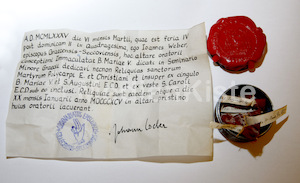 A.D. MCMLXXXV die VI mensis Martii, quae est feria IV
post dominicam II in Quadragesima, ego Ioannes Weber,
episcopus Graecensis-Seccoviensis, hoc altare oratorii
Conceptioni Immaculatae B. Mariae V. dicatae in Seminario
Minore Graecii dedicavi necnon Reliquias sanctorum
Martyrum Rusticae E. et Christiani et insuper ex cingulo
B. Mariae V. et S. Augustini E.C.D. et ex veste B. Caroli
E.C.D. sub eo inclusi. Reliquiae sunt eaedem, quae a die
XX mensis Ianuarii anno MDCCCXCV in altari pristino
huius oratorii iacuerunt.
Johann Weber